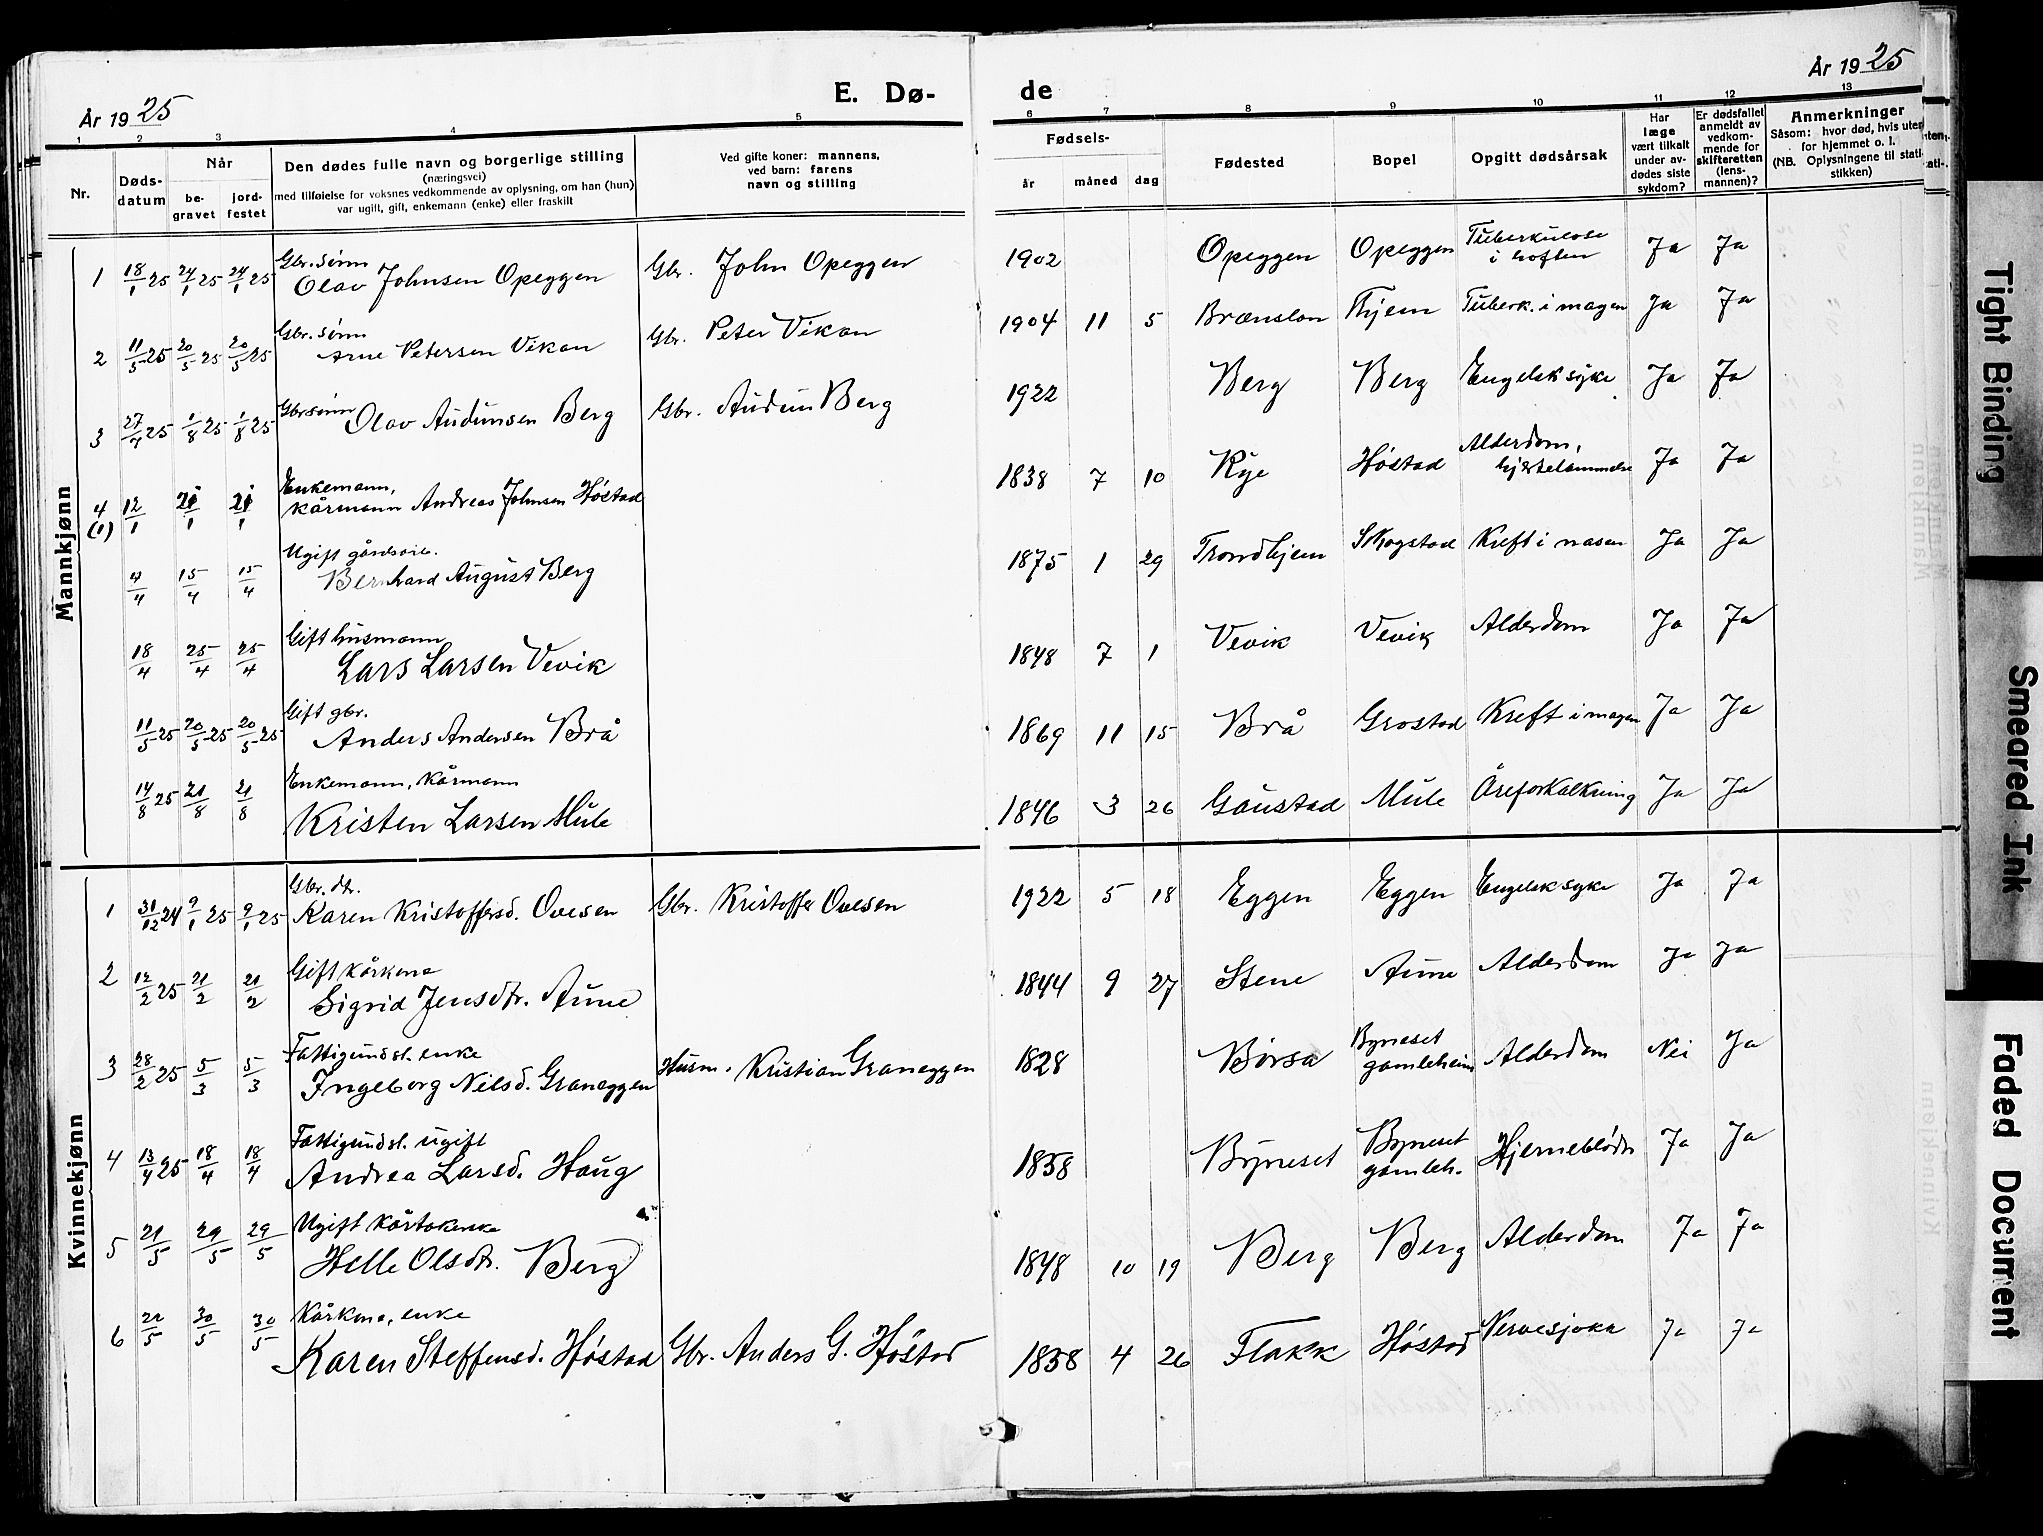 År 1925
E. Dø-
de
År 1925
1 2 3 4 5 6 7 8 9 10 11 12 13
Nr.
Døds-
datum
Når
be-
gravet
jord-
festet
Den dødes fulle navn og borgerlige stilling
(næringsvei)
med tilføielse for voksnes vedkommende av oplysning, om han (hun)
var ugift, gift, enkemann (enke) eller fraskilt
Ved gifte koner: mannens,
ved barn: farens
navn og stilling
Fødsels-
år måned dag
Fødested
Bopel
Opgitt dødsårsak
Har
læge
vært tilkalt
under av-
dødes siste
sykdom?
Er dødsfallet
anmeldt av
vedkom-
mende for
skifteretten
(lens-
mannen)?
Anmerkninger
Såsom: hvor død, hvis uten-
for hjemmet o. l.
(NB. Oplysningene til stati-
stikken)
Mannkjønn
Gbr. sønn
1 18/1 25 24/1 25 24/1 25 Olav Johnsen Opeggen Gbr. John Opeggen 1902 Opeggen Opeggen Tuberkulose i hoften Ja Ja
Gbr. sønn
2 11/5 25 20/5 25 20/5 25 Arne Petersen Vikan Gbr. Peter Vikan 1904 11 5 Brænslan Thjem Tuberk. i magen Ja Ja
3 27/7 25 1/8 25 1/8 25 Gbr sønn Olav Audunsen Berg Gbr. Audun Berg 1922 Berg Berg Engelsk syke Ja Ja
Enkemann,
4 (1) 12/1 21/1 21/1 kårmann Andreas Johnsen Høstad 1838 7 10 Rye Høstad Alderdom, hjertelammelse Ja Ja
Ugift gårdsarb.
4/4 15/4 15/4 Bernhard August Berg 1875 1 29 Trondhjem Skogstad Kreft i nasen Ja Ja
Gift husmann
18/4 25/4 25/4 Lars Larsen Vevik 1848 7 1 Vevik Vevik Alderdom Ja Ja
Gift gbr.
11/5 25 20/5 25 20/5 25 Anders Andersen Brå 1869 11 15 Brå Grostad Kreft i magen Ja Ja
Enkemann, kårmann
14/8 25 21/8 21/8 Kristen Larsen Mule 1846 3 26 Gaustad Mule Åreforkalkning Ja Ja
Kvinnekjønn
Gbr. dtr.
1 31/12 24 9/1 25 9/1 25 Karen Kristoffersd. Ovesen Gbr. Kristoffer Ovesen 1922 5 18 Eggen Eggen Engelsk syke Ja Ja
Gift kårkone
2 12/2 25 21/2 21/2 Sigrid Jensdtr. Aune 1844 9 27 Stene Aune Alderdom Ja Ja
Fattigundst. enke
3 28/2 25 5/3 5/3 Ingeborg Nilsd. Graneggen Husm. Kristian Graneggen 1828 Børsa Byneset gamleheim Alderdom Nei Ja
Fattigundst. ugift
4 13/4 25 18/4 18/4 Andrea Larsd. Haug 1858 Byneset Byneset gamleh. Hjerneblødn Ja Ja
Ugift
5 21/5 29/5 29/5 Helle Olsdtr. Berg 1848 10 19 Berg Berg Alderdom Ja Ja
Kårkone, enke
6 22/5 30/5 30/5 Karen Steffensd. Høstad Gbr. Anders G. Høstad 1858 4 26 Flakk Høstad Ja Ja
Tight Binding
Smeared Ink
Faded Document